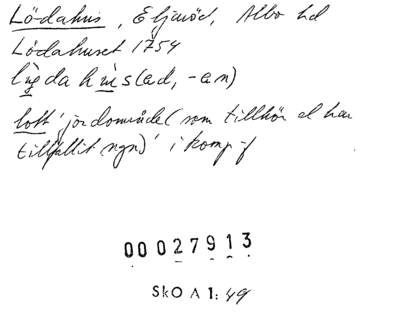 Lödahus, Eljaröd, Albo hd
Lödahuset 1754
lø̀gda hùs(ed, -en)
lott 'jordområde (som tillhör el har
tillfallit ngn)' i komp-f
00027913
SkO A 1: 49